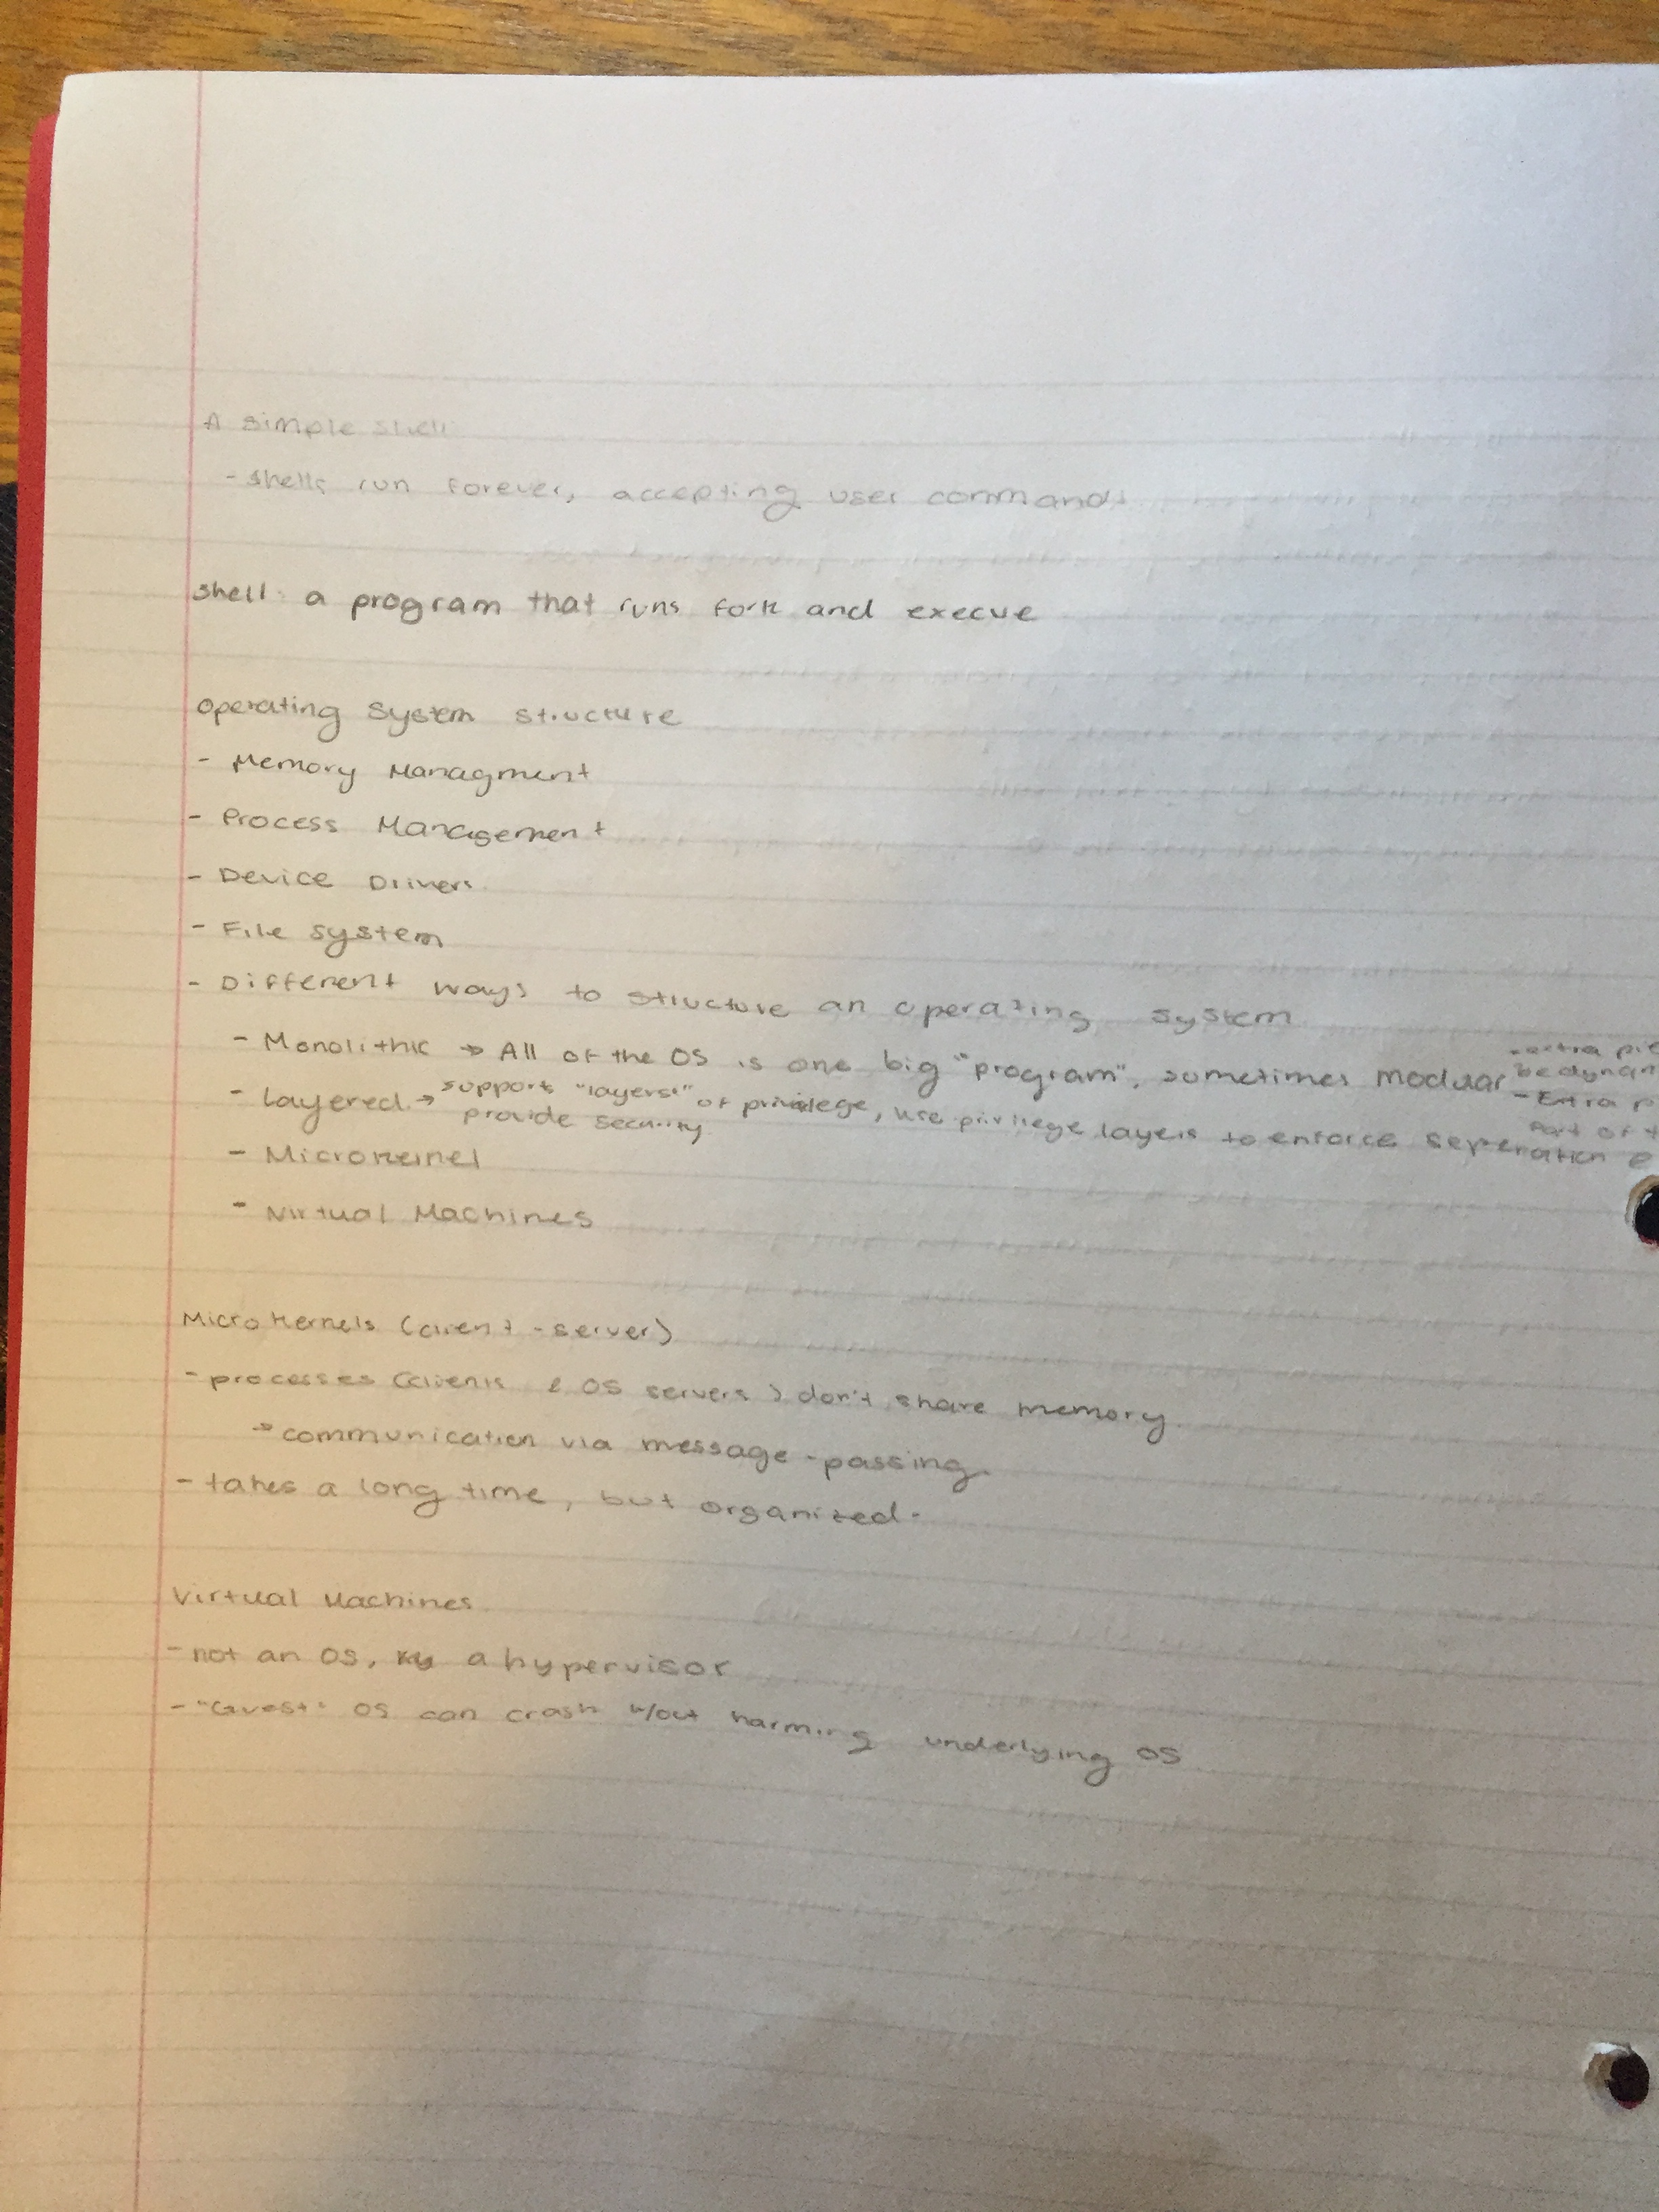 A simple shell
- shells run forever, accepting user commands
shell: a program that runs fork and execve
operating system structure
- Memory Managment
- Process Management
- Device Drivers
- File system
- Different ways to structure an operating system
- Monolithic → All of the OS is one big "program", sometimes modular
- extra pie
be dynam
- Extra p
part of t
- Layered → supports "layers" of privilege, use privilege layers to enforce seperation &
provide security
- Microkernel
- Virtual Machines
Microkernels (client-server)
- processes (clients & OS servers) don't share memory
→ communication via message-passing.
- takes a long time, but organized.
Virtual Machines
- not an OS, a hypervisor
- "Guest" OS can crash w/out harming underlying OS